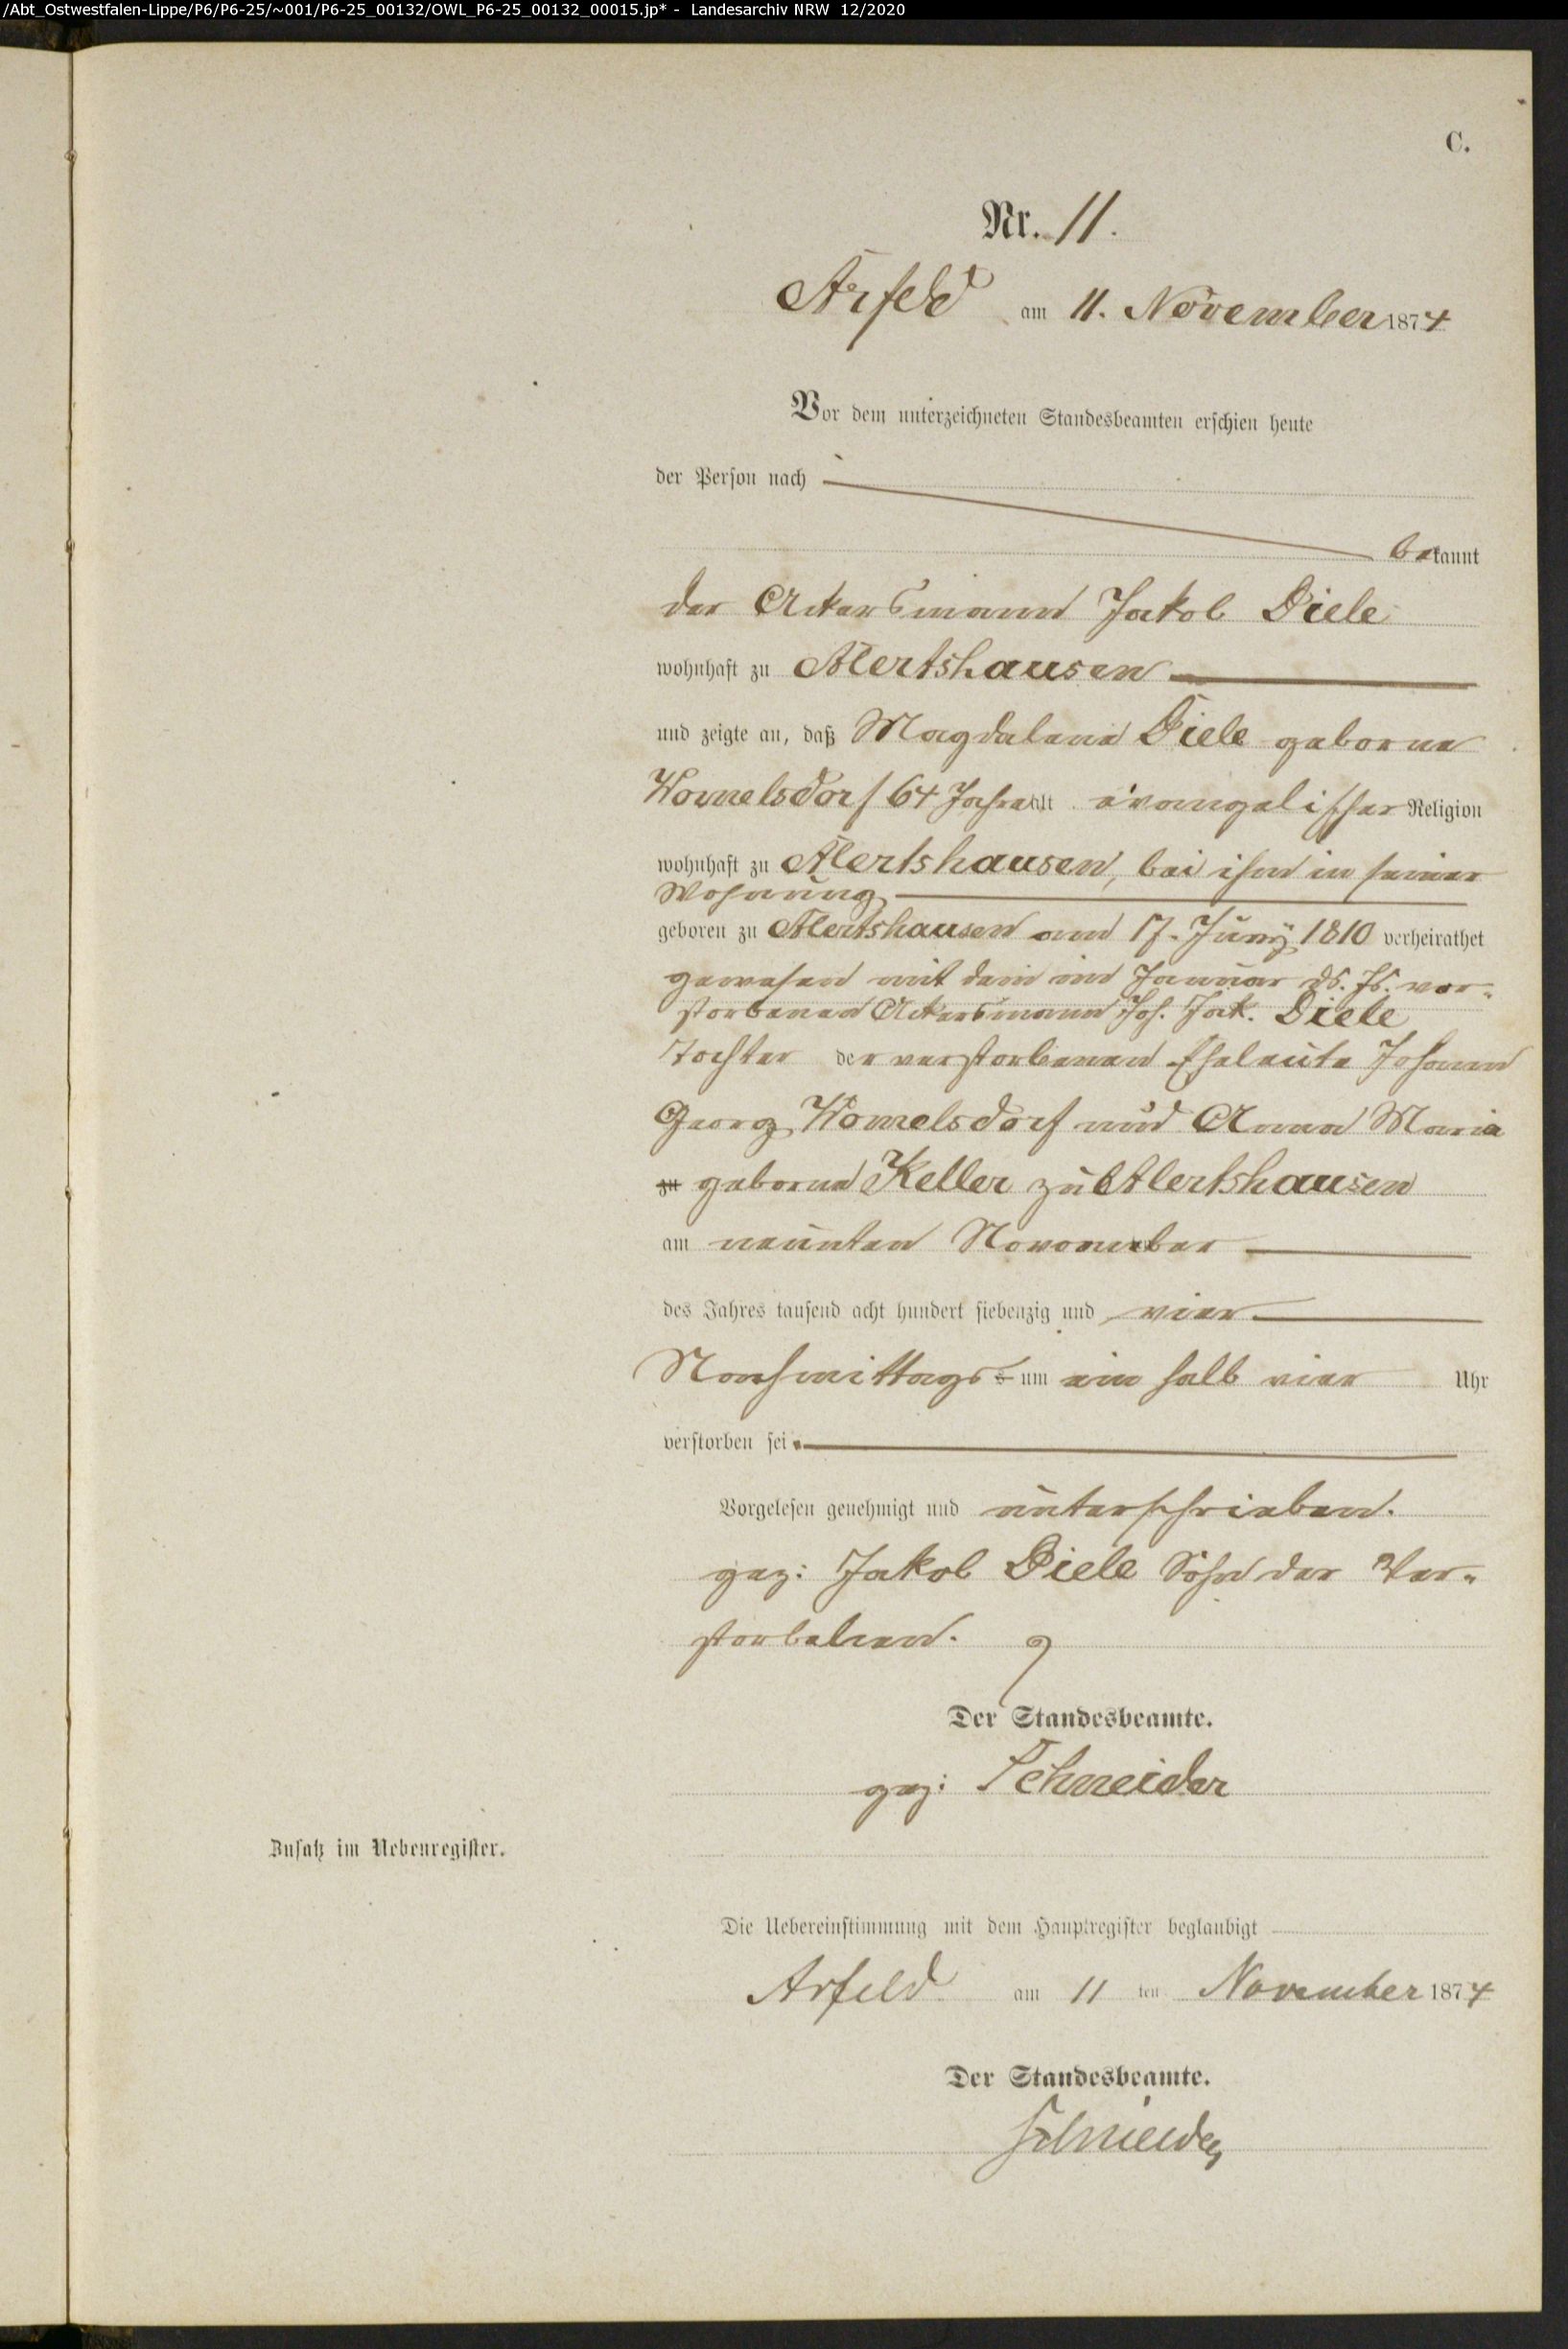 /Abt_Ostwestfalen-Lippe/P6/P6-25/~001/P6-25_00132/OWL_P6-25_00132_00015.jp* - Landesarchiv NRW 12/2020
C.
Nr. 11.
Arfeld am 11. November 1874
Vor dem unterzeichneten Standesbeamten erschien heute
der Person nach
bekannt
der Ackersmann Jakob Diele
wohnhaft zu Alertshausen
und zeigte an, daß Magdalena Diele geborne
Womelsdorf 64 Jahre alt evangelischer Religion
wohnhaft zu Alertshausen, bei ihm in seiner
Wohnung
geboren zu Alertshausen am 17. Juny 1810 verheirathet
gewesen mit dem im Januar ds. Js. ver-
storbenen Ackersmann Joh. Jak. Diele
Tochter der verstorbenen Eheleute Johann
Georg Womelsdorf und Anna Maria
zu geborne Keller zu Alertshausen
am neunten November
des Jahres tausend acht hundert siebenzig und vier
Nachmittags s um ein halb vier Uhr
verstorben sei.
Vorgelesen genehmigt und unterschrieben.
gez: Jakob Diele Sohn der Ver-
storbenen.
Der Standesbeamte.
gez: Schneider
Zusatz im Nebenregister.
Die Uebereinstimmung mit dem Hauptregister beglaubigt
Arfeld am 11 ten November 1874
Der Standesbeamte.
Schneider